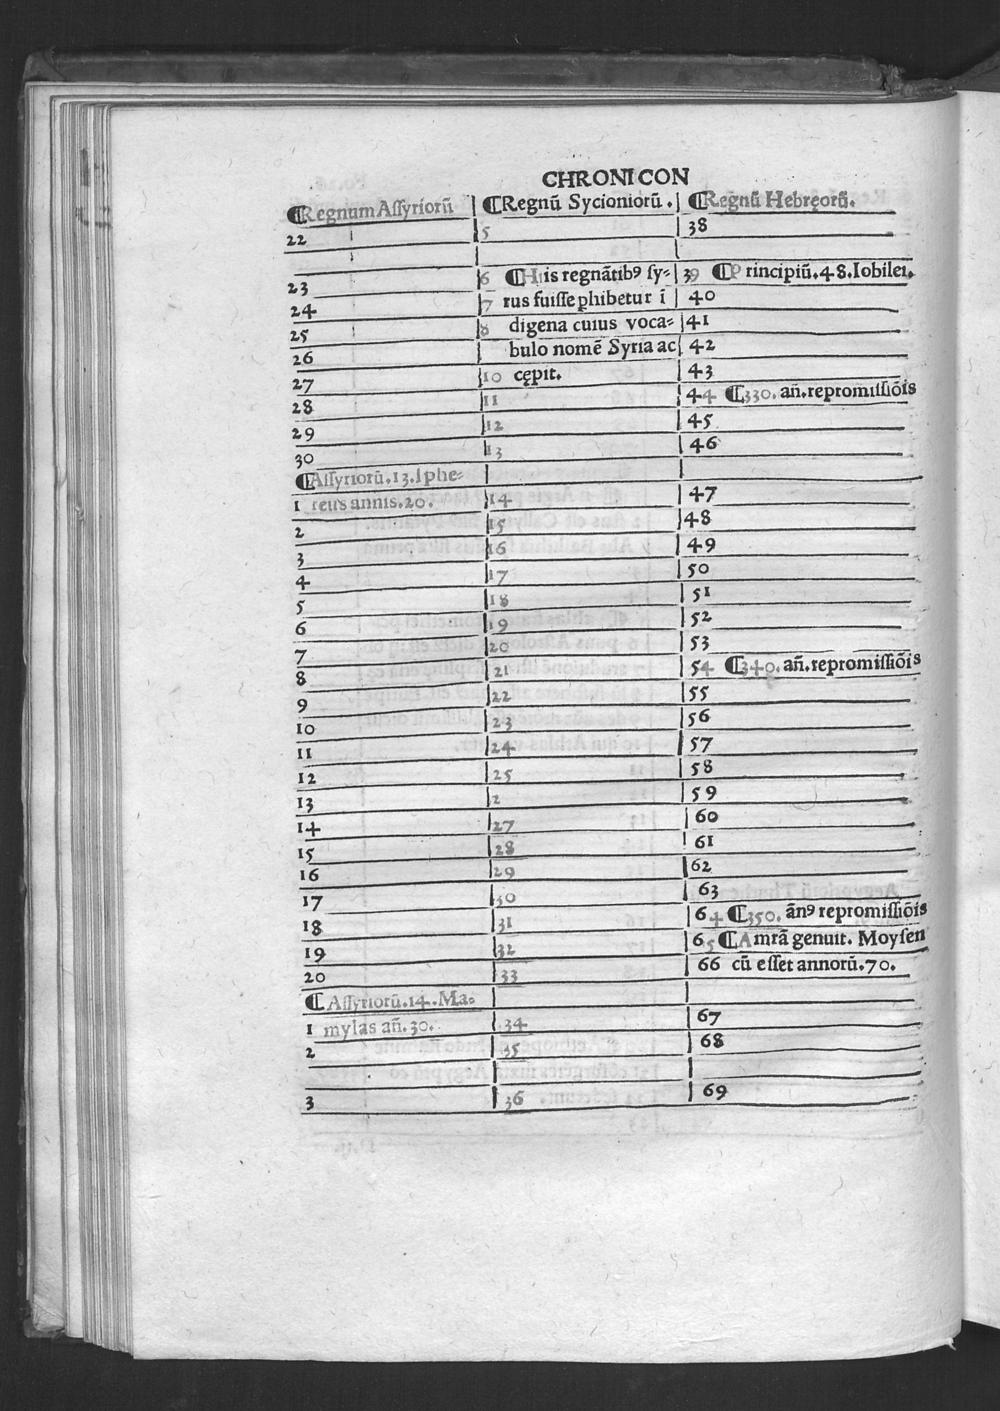 CHRONICON
⁋Regnum Aſſyriorū | ⁋Regnū Sycioniorū. | ⁋Regnū Hebręorū.
22 | 5 | 38
23 | 6 ⁋His regnātibꝰ ſy⸗ | 39 ⁋Principiū.48.Iobilei.
24 | 7 rus fuiſſe ꝓhibetur ī | 40
25 | 8 digena cuius voca⸗ | 41
26 | bulo nomē Syria ac | 42
27 | 10 cępit. | 43
28 | 11 | 44 ⁋330. añ.repromiſſiōis
29 | 12 | 45
30 | 13 | 46
⁋Aſſyriorū.13.Iphe⸗
1 reus annis.20. | 14 | 47
2 | 15 | 48
3 | 16 | 49
4 | 17 | 50
5 | 18 | 51
6 | 19 | 52
7 | 20 | 53
8 | 21 | 54 ⁋340. añ.repromiſſiōis
9 | 22 | 55
10 | 23 | 56
11 | 24 | 57
12 | 25 | 58
13 | 2 | 59
14 | 27 | 60
15 | 28 | 61
16 | 29 | 62
17 | 30 | 63
18 | 31 | 64 ⁋350. āñꝰ repromiſſiōis
19 | 32 | 65 ⁋Amrā genuit. Moyſen
20 | 33 | 66 cū eſſet annorū.70.
⁋Aſſyriorū.14.Ma⸗
1 mylas añ.30. | 34 | 67
2 | 35 | 68
3 | 36 | 69